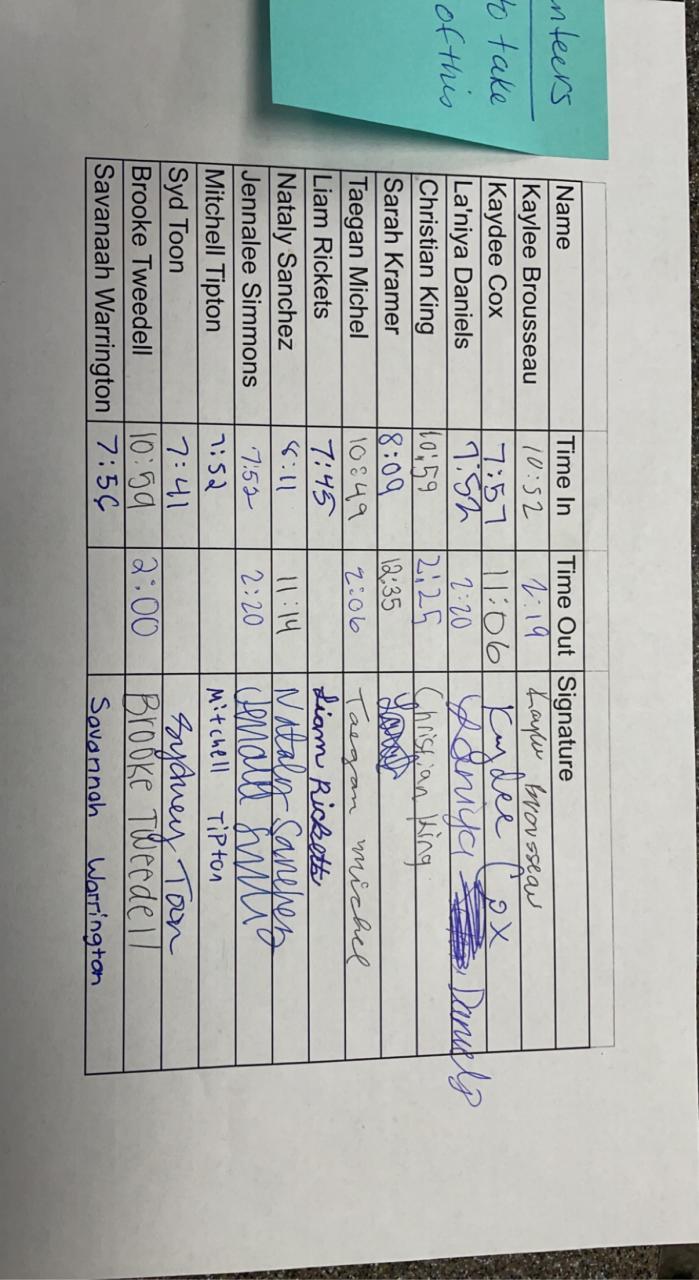 nteers
to take
of this
Name Time In Time Out Signature
Kaylee Brousseau 10:52 2:19 Kaylee Brousseau
Kaydee Cox 7:57 11:06 Kaydee Cox
La'niya Daniels 7:52 2:20 La'niya Daniels
Christian King 10:59 2:25 Christian King
Sarah Kramer 8:09 12:35
Taegan Michel 10:49 2:06 Taegan Michel
Liam Rickets 7:45 Liam Ricketts
Nataly Sanchez 8:11 11:14 Nataly Sanchez
Jennalee Simmons 7:52 2:20
Mitchell Tipton 7:52 Mitchell TiPton
Syd Toon 7:41 Sydney Toon
Brooke Tweedell 10:59 2:00 Brooke Tweedell
Savanaah Warrington 7:56 Savannah Warrington